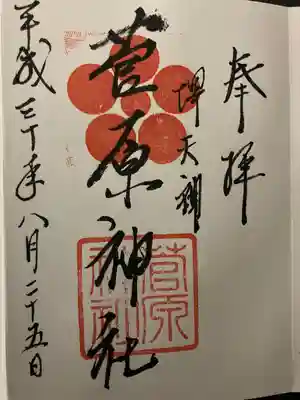 奉拝
堺天神
菅原神社
平成三十年八月二十五日
菅原
神社